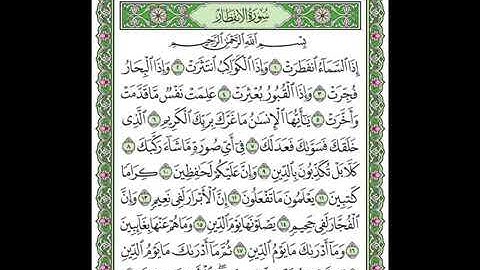 سُورَةُ الِانفِطَارِ
بِسْمِ اللَّهِ الرَّحْمَٰنِ الرَّحِيمِ
إِذَا السَّمَاءُ انفَطَرَتْ ١ وَإِذَا الْكَوَاكِبُ انتَثَرَتْ ٢ وَإِذَا الْبِحَارُ
فُجِّرَتْ ٣ وَإِذَا الْقُبُورُ بُعْثِرَتْ ٤ عَلِمَتْ نَفْسٌ مَّا قَدَّمَتْ
وَأَخَّرَتْ ٥ يَا أَيُّهَا الْإِنسَانُ مَا غَرَّكَ بِرَبِّكَ الْكَرِيمِ ٦ الَّذِي
خَلَقَكَ فَسَوَّاكَ فَعَدَلَكَ ٧ فِي أَيِّ صُورَةٍ مَّا شَاءَ رَكَّبَكَ ٨
كَلَّا بَلْ تُكَذِّبُونَ بِالدِّينِ ٩ وَإِنَّ عَلَيْكُمْ لَحَافِظِينَ ١٠ كِرَامًا
كَاتِبِينَ ١١ يَعْلَمُونَ مَا تَفْعَلُونَ ١٢ إِنَّ الْأَبْرَارَ لَفِي نَعِيمٍ ١٣ وَإِنَّ
الْفُجَّارَ لَفِي جَحِيمٍ ١٤ يَصْلَوْنَهَا يَوْمَ الدِّينِ ١٥ وَمَا هُمْ عَنْهَا بِغَائِبِينَ
١٦ وَمَا أَدْرَاكَ مَا يَوْمُ الدِّينِ ١٧ ثُمَّ مَا أَدْرَاكَ مَا يَوْمُ الدِّينِ